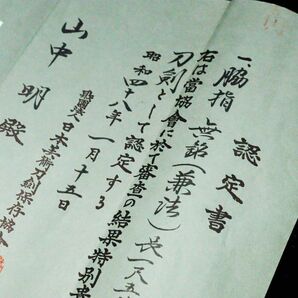 認定書
一、脇指 無銘(兼法)長一尺五
右は當協會に於て審査の結果特別貴
刀剣として認定する
昭和四十八年一月十五日
財團法人日本美術刀剣保存協會
山中 明 殿